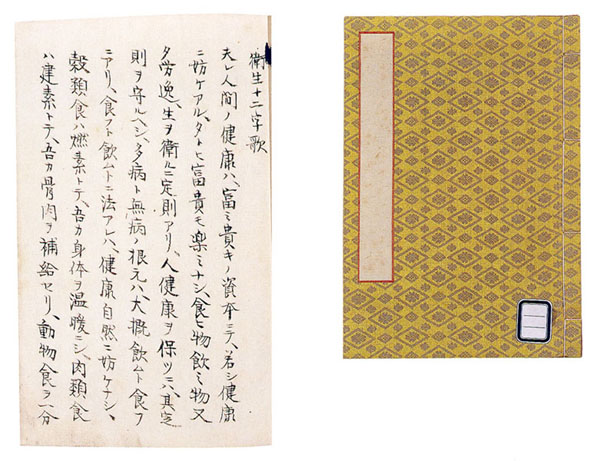 衛生十二字歌
夫レ人間ノ健康ハ、富ミ貴キノ資本ニテ、若シ健康
ニ妨ケアル、タトヒ富貴モ楽ミナシ、食ヒ物飲ミ物又
タ労逸、生ヲ衛ルニ定則アリ、人健康ヲ保ツニハ、其定
則ヲ守ルヘシ、多病ト無病ノ根元ハ、大概飲ムト食フ
ニアリ、食フト飲ムトニ法アレハ、健康自然ニ妨ケナシ、
穀類食ハ燃素トテ、吾カ身体ヲ温暖ニシ、肉類食
ハ建素トテ、吾カ骨肉ヲ補給セリ、動物食ヲ一分